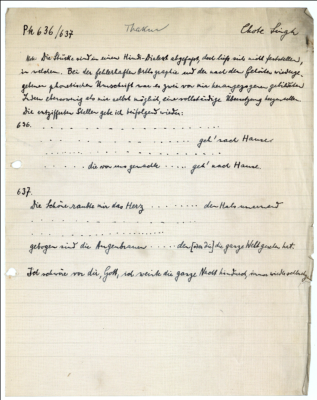 Ph 636/637 Thakur Chote Singh
NB. Die Stücke sind in einem Hindi-Dialekt abgefasst, doch liess sich nicht feststellen,
in welchem. Bei der fehlerhaften Orthographie und der nach dem Gehör wiederge-
gebenen phonetischen Umschrift war es zwei von mir herangezogenen gebildeten
Indern ebensowenig als mir selbst möglich, eine vollständige Übersetzung herzustellen.
Die entzifferten Stellen gebe ich beifolgend wieder:
636. . . . . . . . . . . . . . . . . .
. . . . . . . . . . . . . geh' nach Hause
. . . . . . . . . . . . . . . . . .
. . . . . die von uns gemachte . . . . . geh' nach Hause
637.
Die Schöne raubte mir das Herz . . . . . . . . den Hals
. . . . . . . . . . . . . . . . . .
. . . . . . . . . . . . . . . . . .
gebogen sind die Augenbrauen . . . . . die ganze Welt
Ich schwöre vor dir, Gott, ich weinte die ganze Nacht hindurch,